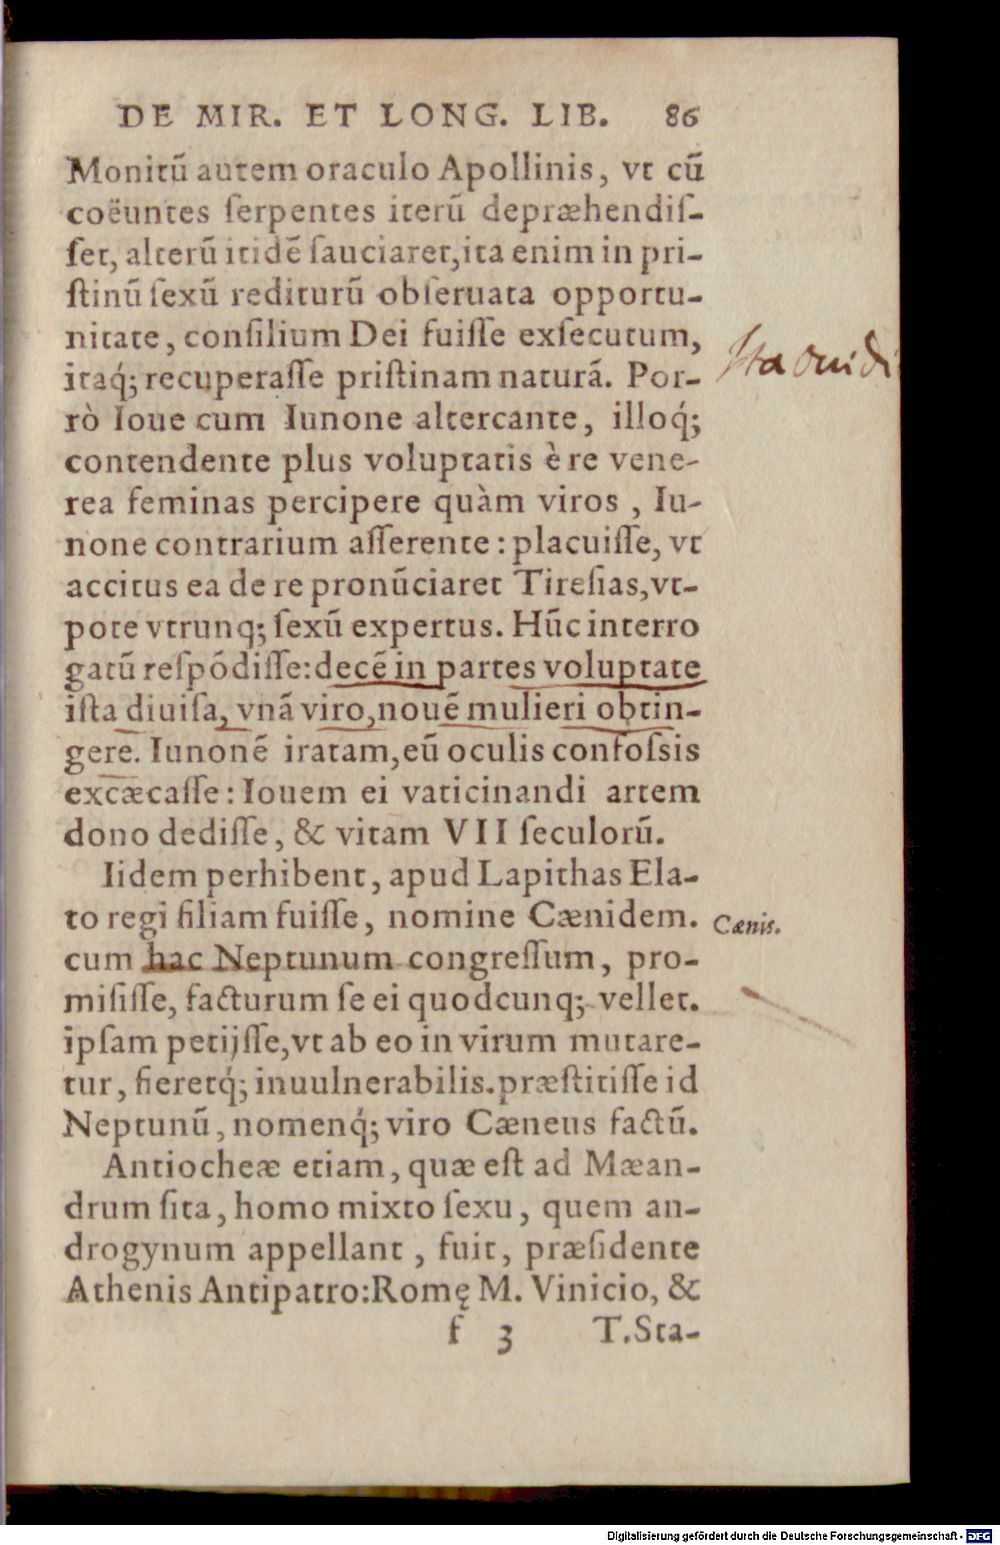 DE MIR. ET LONG. LIB. 86
Monitū autem oraculo Apollinis, vt cū
coëuntes ſerpentes iterū depræhendiſ-
ſet, alterū itidē ſauciaret,ita enim in pri-
ſtinū ſexū rediturū obſeruata opportu-
nitate, conſilium Dei fuiſſe exſecutum,
itaq́; recuperaſſe priſtinam naturā. Por-
rò Ioue cum Iunone altercante, illoq́;
contendente plus voluptatis è re vene-
rea feminas percipere quàm viros, Iu-
none contrarium aſſerente: placuiſſe, vt
accitus ea de re pronūciaret Tireſias,vt-
pote vtrunq; ſexū expertus. Hūc interro
gatū reſpōdiſſe:decē in partes voluptate
iſta diuiſa, vnā viro,nouē mulieri obtin-
gere. Iunonē iratam,eū oculis confoſsis
excæcaſſe: Iouem ei vaticinandi artem
dono dediſſe, & vitam VII ſeculorū.
Iidem perhibent, apud Lapithas Ela-
to regi filiam fuiſſe, nomine Cænidem.
cum hac Neptunum congreſſum, pro-
miſiſſe, facturum ſe ei quodcunq; vellet.
ipſam petijſſe,vt ab eo in virum mutare-
tur, fieretq́; inuulnerabilis.præſtitiſſe id
Neptunū, nomenq́; viro Cæneus factū.
Antiocheæ etiam, quæ eſt ad Mæan-
drum ſita, homo mixto ſexu, quem an-
drogynum appellant, fuit, præſidente
Athenis Antipatro:Romę M. Vinicio, &
f 3 T.Sta-
Ita ouidi
Cænis.
Digitalisierung gefördert durch die Deutsche Forschungsgemeinschaft - DFG